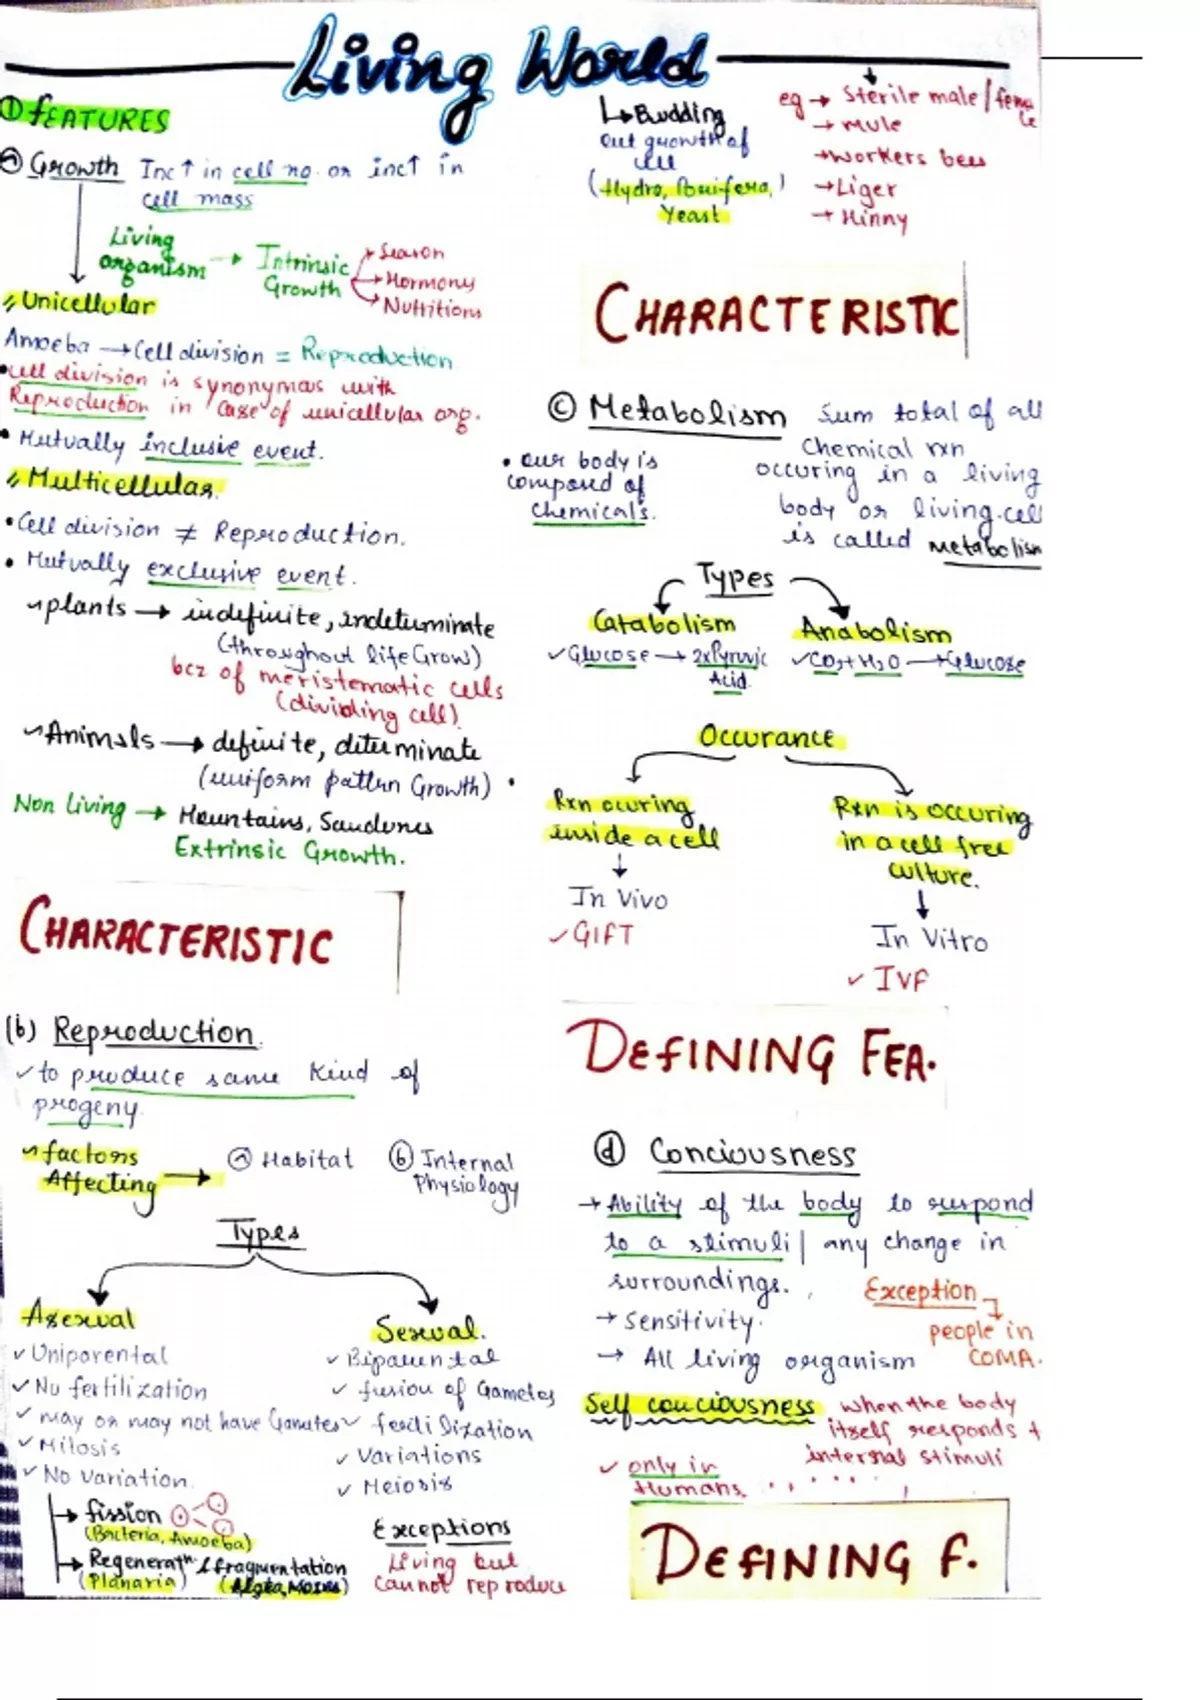 Living World
① FEATURES
ⓐ Growth Inc↑ in cell no. or inc↑ in
cell mass
Living
organism → Intrinsic
Growth
→ Season
→ Hormony
→ Nutritions
Unicellular
Amoeba → Cell division = Reproduction
• cell division is synonymas with
Reproduction in case of unicellular org.
• Mutually inclusive event.
Multicellular.
• Cell division ≠ Reproduction.
• Mutually exclusive event.
plants → indefinite, indeterminate
(throughout life Grow)
bcz of meristematic cells
(dividing cell)
Animals → definite, determinate
(uniform pattern Growth)
Non living → Mountains, Sandunes
Extrinsic Growth.
CHARACTERISTIC
(b) Reproduction.
✓ to produce same kind of
progeny.
factors
Affecting → ⓐ Habitat ⓑ Internal
Physiology
Types
Asexual
✓ Uniparental
✓ No fertilization
✓ may or may not have Gametes
✓ Mitosis
✓ No variation
→ fission
(Bacteria, Amoeba)
→ Regeneratn / fragmentation
(Planaria) (Algea, Moses)
Sexual.
✓ Biparental
✓ fusion of Gametes
✓ fertilization
✓ Variations
✓ Meiosis
Exceptions
Living but
cannot reproduce
↳ Budding
out growth of
cell
(Hydro, Porifera,)
Yeast
eg → Sterile male / fema
le
→ Mule
→ workers bees
→ Liger
→ Hinny
CHARACTERISTIC
ⓒ Metabolism Sum total of all
Chemical rxn
occuring in a living
body or living cell
is called Metabolism
• our body is
composed of
chemicals.
Types
Catabolism
✓ Glucose → 2xPyruvic
Acid
Anabolism
✓ CO₂ + H₂O → Glucose
Occurance
Rxn ocuring
inside a cell
↓
In Vivo
✓ GIFT
Rxn is occuring
in a cell free
culture.
↓
In Vitro
✓ IVF
DEFINING FEA.
ⓓ Conciousness
→ Ability of the body to respond
to a stimuli / any change in
surroundings.
→ Sensitivity.
→ All living organism
Exception
people in
COMA.
Self conciousness when the body
itself responds t
internal stimuli
✓ only in
Humans
DEFINING F.